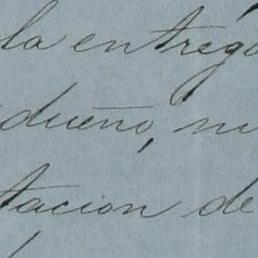 la entrega
dueño, ni
tacion de